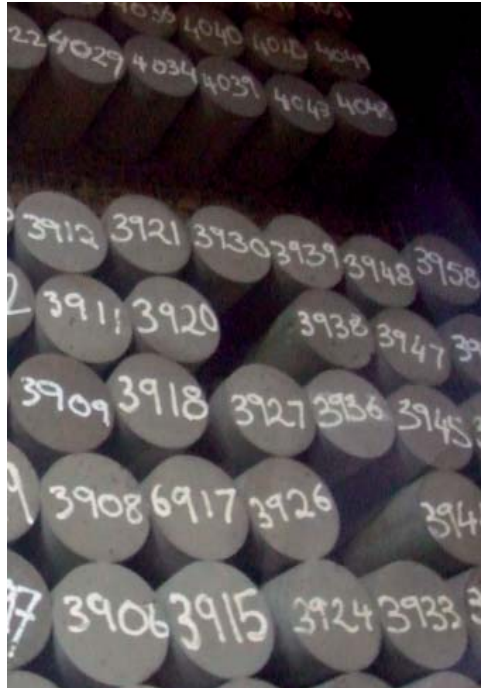 4040
4029 4034 4039 4043 4048
3912 3921 3930 3939 3948 3958
3911 3920 3938 3947
3909 3918 3927 3936 3945
3908 6917 3926
3906 3915 3924 3933